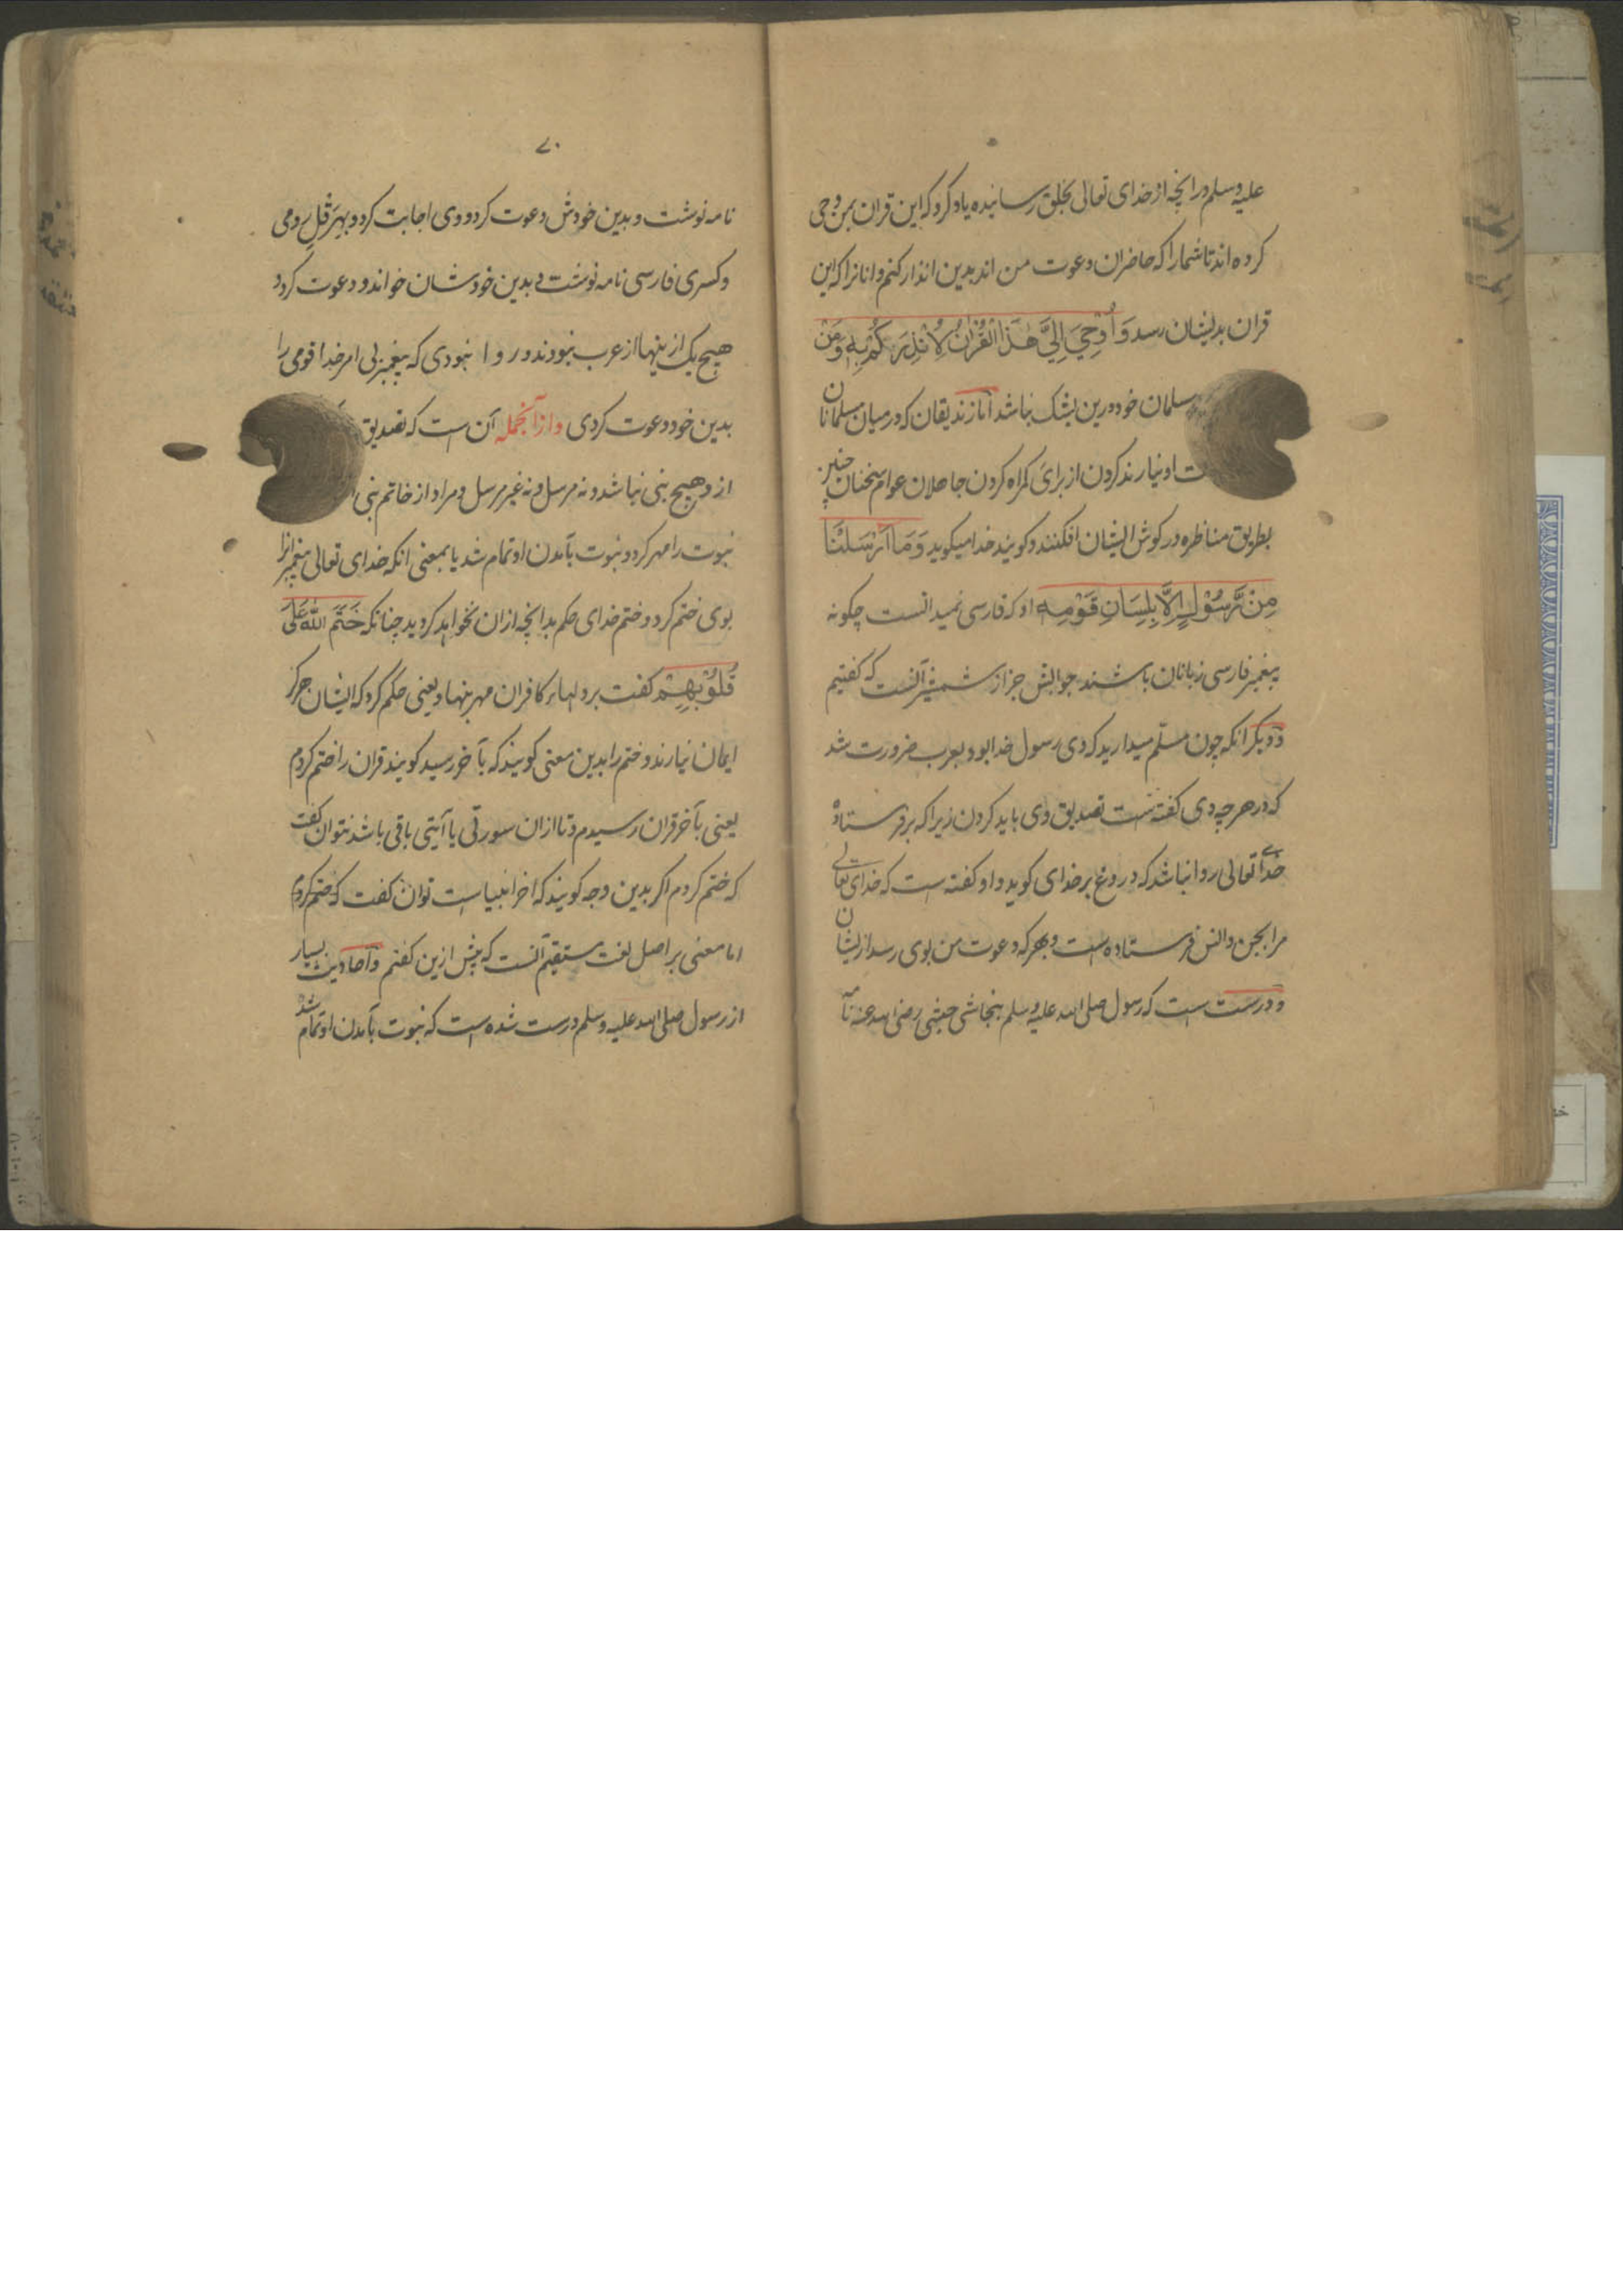 علیه وسلم در انچه از خدای تعالی بخلق رسانیده یاد کرد که این قران بمن وحی
کرده اند تا شما را که حاضران دعوت من اند بدین انذار کنم و انانرا که این
قران بدیشان رسد وَاُوْحِيَ اِلَيَّ هٰذَا الْقُرْاٰنُ لِاُنْذِرَكُمْ بِهٖ وَمَنْ
مسلمان خود درین بشک نباشد اما زندیقان که در میان مسلمانان
او نیارند کردن از برای کمراه کردن جاهلان عوام سخنان چنین
بطریق مناظره در کوش ایشان افکنند و کویند خدا میکوید وَمَا اَرْسَلْنَا
مِنْ رَّسُوْلٍ اِلَّا بِلِسَانِ قَوْمِهٖ او که فارسی نمیدانست چکونه
پیغمبر فارسی زبانان باشند جوابش جز از شمشیر آنست که کفتیم
و دیکر انکه چون مسلّم میدارید که وی رسول خدا بود بعرب ضرورت شد
که در هر چه وی کفته است تصدیق وی باید کردن زیرا که بر فرستاده
خدای تعالی روا نباشد که دروغ بر خدای کوید و او کفته است که خدای تعالی
مرا بجن و انس فرستاده است و بهر که دعوت من بوی رسد از یشان
و درست است که رسول صلی الله علیه وسلم بنجاشی حبشی رضی الله عنه نامه
۷۰
نامه نوشت و بدین خودش دعوت کرد و وی اجابت کرد و بهِرَقْلِ رومی
و کسری فارسی نامه نوشت و بدین خودشان خواند و دعوت کرد و
هیچ یک از ینها از عرب نبودند و روا نبودی که پیغمبر بی امر خدا قومی را
بدین خود دعوت کردی و از آنجمله آن است که تصدیق
از و هیچ نبی نباشد و نه مرسل و نه غیر مرسل و مراد از خاتم نبی
نبوت را مهر کرد و نبوت بآمدن او تمام شد یا بمعنی انکه خدای تعالی پیغمبرانرا
بوی ختم کرد و ختم خدای حکم بدانچه از ان نخواهد کردید چنانکه خَتَمَ اللّٰهُ عَلٰى
قُلُوْبِهِمْ کفت بر دلهاء کافران مهر بنهاد یعنی حکم کرد که ایشان هرکز
ایمان نیارند و ختم را بدین معنی کویند که بآخر رسید کویند قران را ختم کردم
یعنی بآخر قران رسیدم و تا از ان سورتی یا آیتی باقی باشد نتوان کفت
که ختم کردم اکر بدین وجه کویند که اخر انبیا است توان کفت که ختم کردم
اما معنی بر اصل لغت مستقیم آنست که پیش ازین کفتم و احادیث بسیار
از رسول صلی الله علیه وسلم درست شده است که نبوت بآمدن او تمام شد